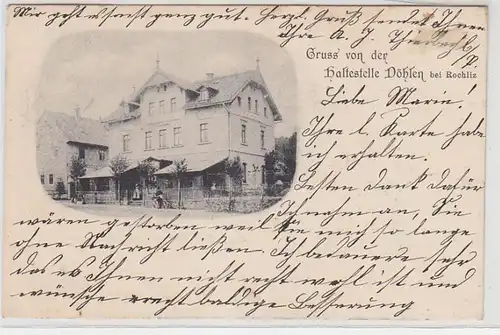 Mir geht es sonst ganz gut. Herzl. Gruß sendet Ihnen
Ihre A. J.
Gruss von der
Haltestelle Döhlen bei Rochlitz
Liebe Marie!
Ihre l. Karte habe
ich erhalten.
Besten Dank dafür
Ich nahm an, Sie
wären gestorben weil Sie mich so lange
ohne Nachricht ließen. Ich bedauere sehr
das es Ihnen nicht recht wohl ist und
wünsche recht baldige Besserung